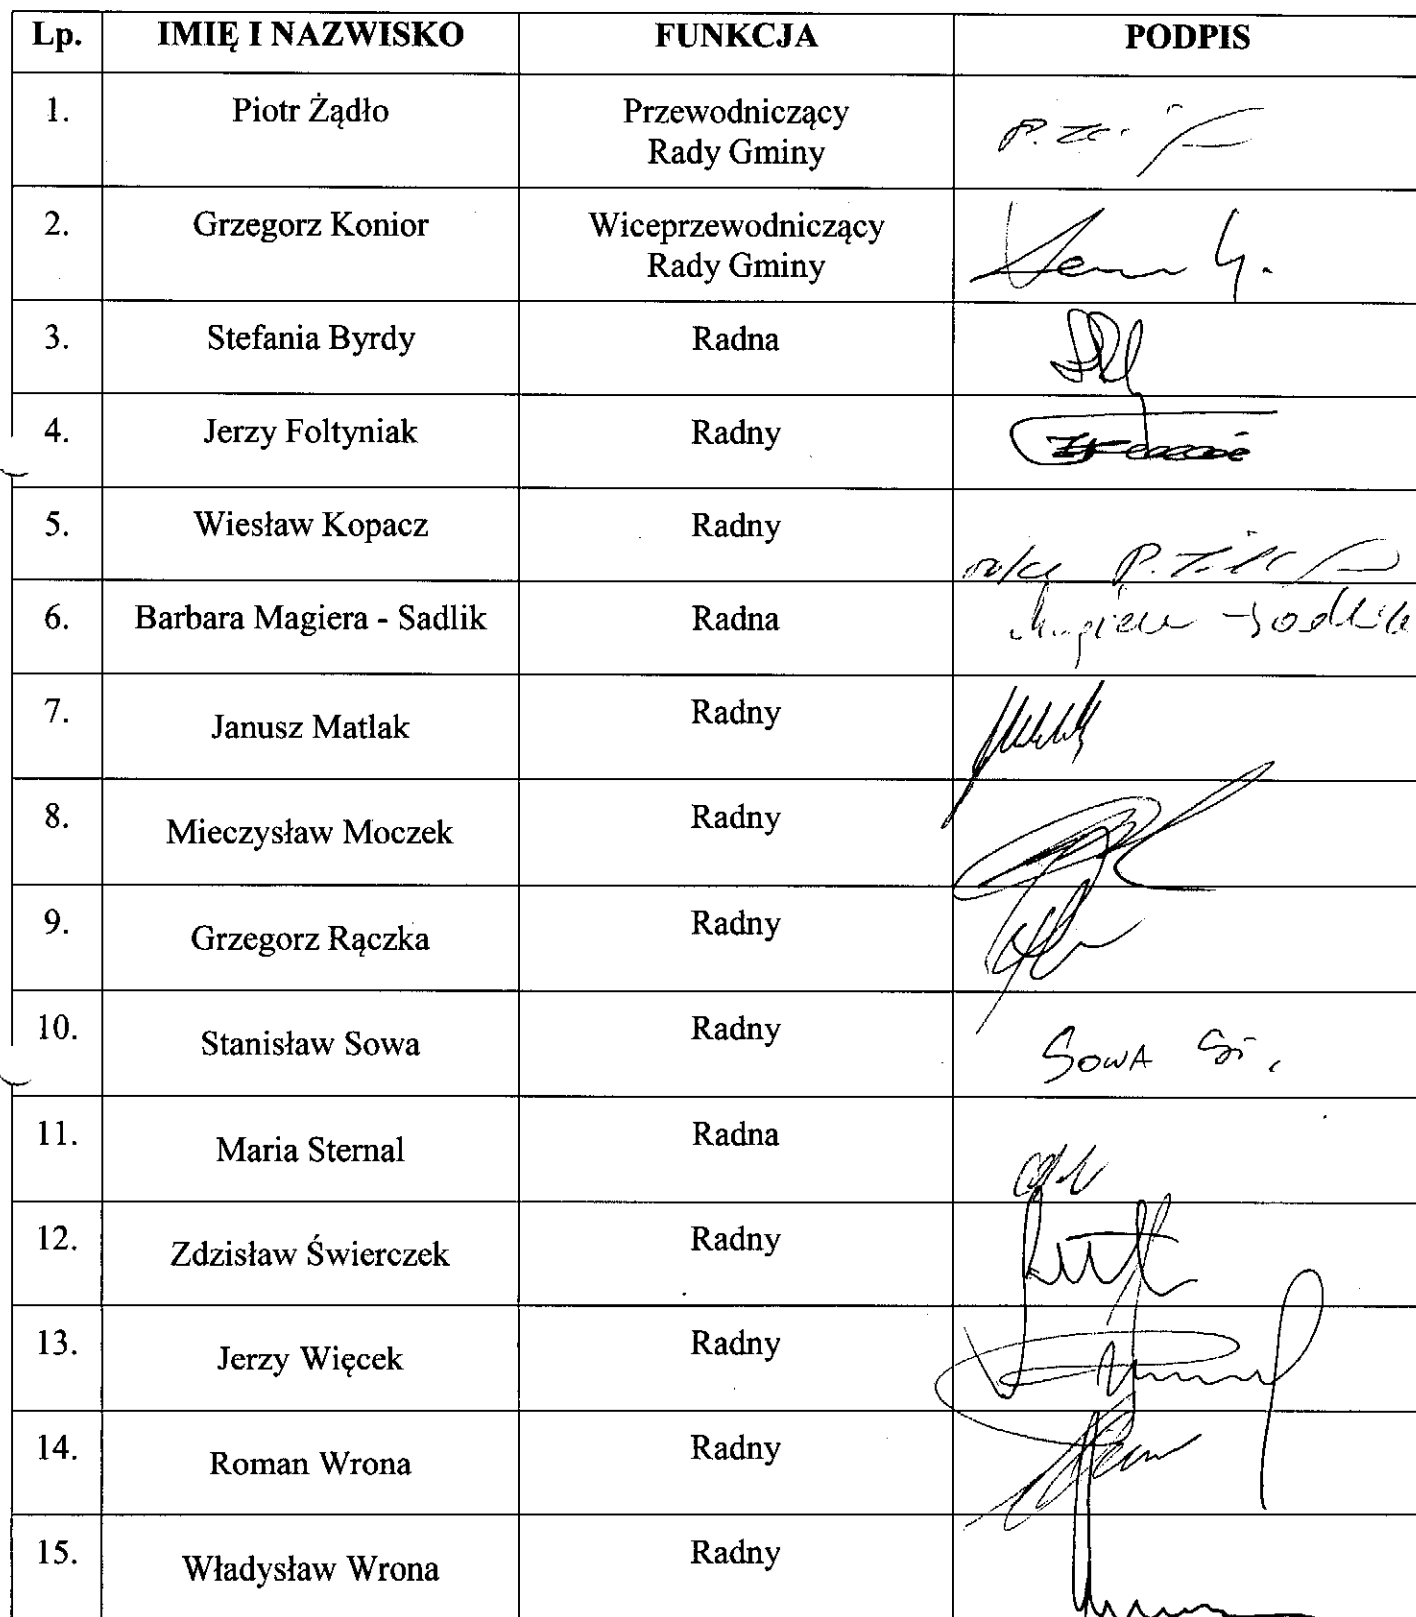 Lp. IMIĘ I NAZWISKO FUNKCJA PODPIS
1. Piotr Żądło Przewodniczący
Rady Gminy
2. Grzegorz Konior Wiceprzewodniczący
Rady Gminy
3. Stefania Byrdy Radna
4. Jerzy Foltyniak Radny
5. Wiesław Kopacz Radny
6. Barbara Magiera - Sadlik Radna Magiera - Sadlik
7. Janusz Matlak Radny
8. Mieczysław Moczek Radny
9. Grzegorz Rączka Radny
10. Stanisław Sowa Radny SOWA St.
11. Maria Sternal Radna
12. Zdzisław Świerczek Radny
13. Jerzy Więcek Radny
14. Roman Wrona Radny
15. Władysław Wrona Radny